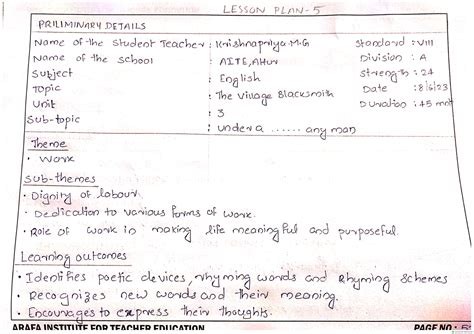 LESSON PLAN - 5
PRILIMINARY DETAILS
Name of the Student Teacher : Krishnapriya.M.G Standard : VIII
Name of the school : AITE, AHur Division : A
Subject : English Strength : 24
Topic : The Village Blacksmith Date : 8/6/23
Unit : 3 Duration : 45 mnt
Sub-topic : under a ...... any man
Theme
• Work
Sub-themes
• Dignity of labour.
• Dedication to various forms of work.
• Role of work in making life meaningful and purposeful.
Learning outcomes
• Identifies poetic devices, rhyming words and Rhyming schemes
• Recognizes new words and their meaning.
• Encourages to express their thoughts.
ARAFA INSTITUTE FOR TEACHER EDUCATION PAGE NO: 5